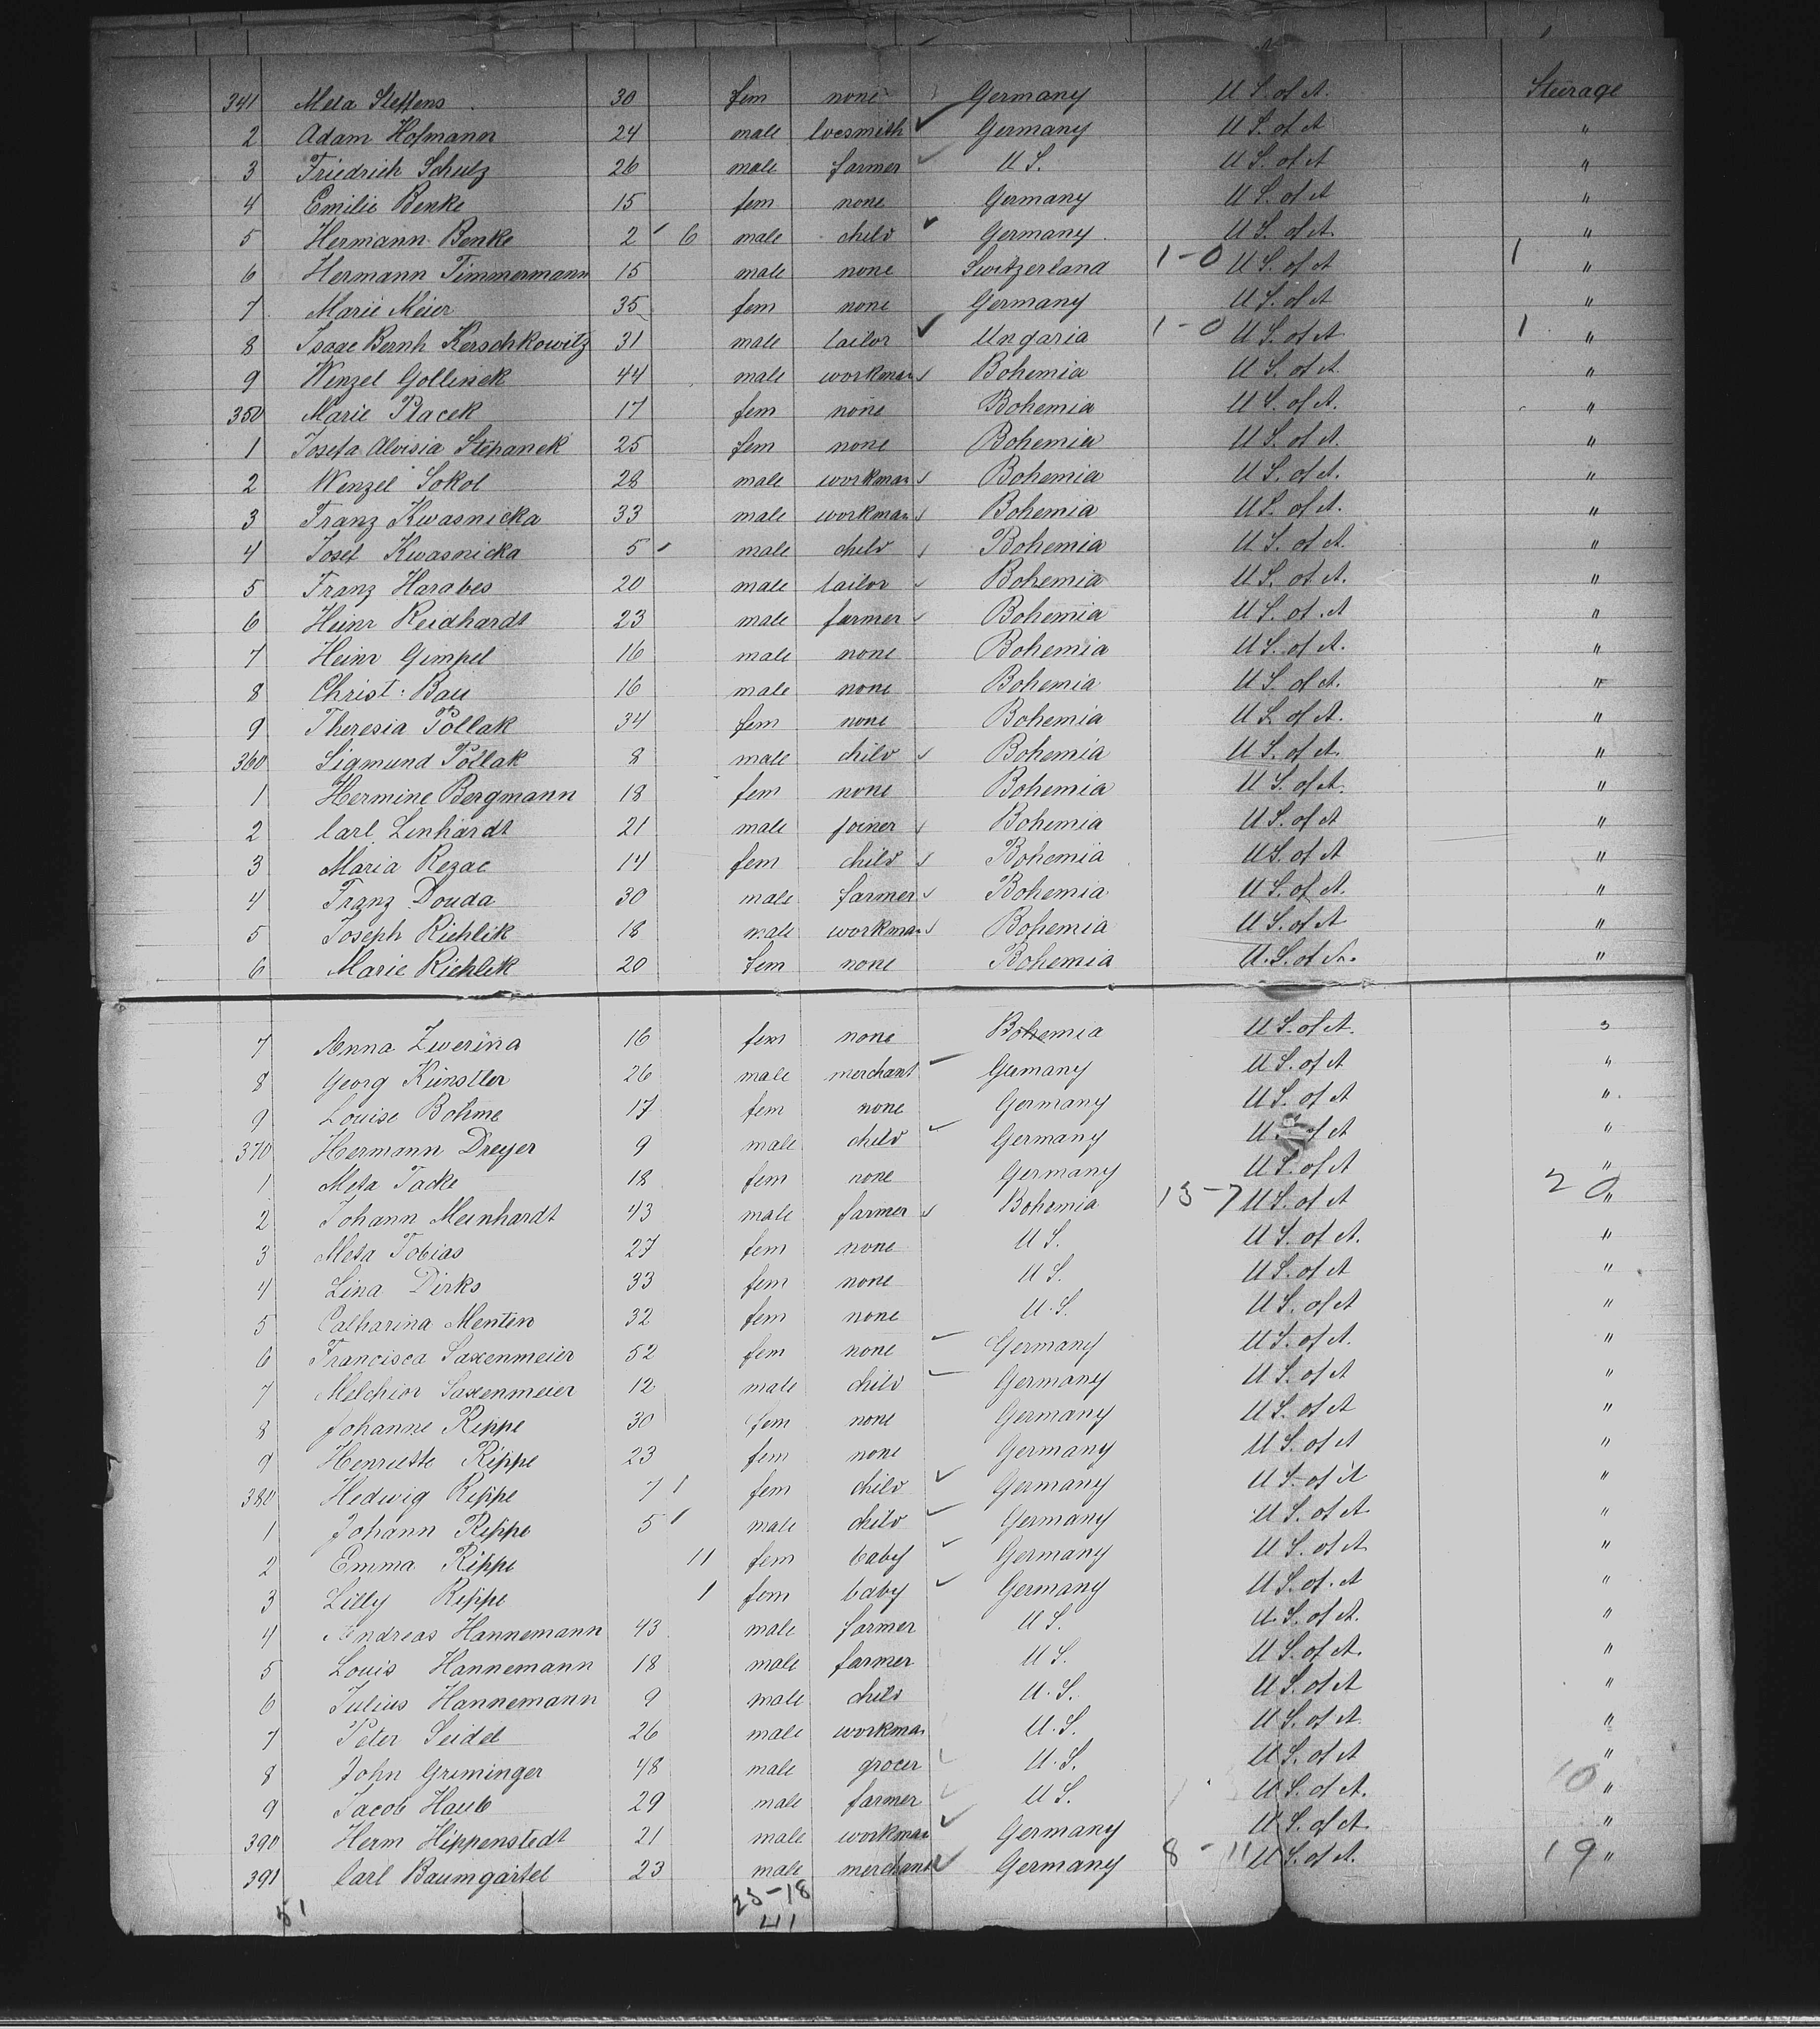 341 Meta Steffens 30 fem none Germany U S. of A. Steerage
2 Adam Hofmann 24 male locsmith Germany U S. of A "
3 Friedrich Schulz 26 male farmer U S. U S. of A "
4 Emilie Benke 15 fem none Germany U S. of A "
5 Hermann Benke 2 6 male child Germany U S. of A. "
6 Hermann Timmermann 15 male none Switzerland 1-0 U S. of A 1 "
7 Marie Meier 35 fem none Germany U S. of A "
8 Isaac Bernh Kerschkowitz 31 male tailor Ungaria 1-0 U S. of A 1 "
9 Wenzel Gollinek 44 male workman Bohemia U S. of A "
350 Marie Placek 17 fem none Bohemia U S. of A. "
1 Josefa Aloisia Stepanek 25 fem none Bohemia U S. of A. "
2 Wenzel Sokol 28 male workman Bohemia U S. of A. "
3 Franz Kwasnicka 33 male workman Bohemia U S. of A. "
4 Josef Kwasnicka 5 male child Bohemia U S. of A. "
5 Franz Harabes 20 male tailor Bohemia U S. of A. "
6 Heinr Reidhardt 23 male farmer Bohemia U S. of A "
7 Heinr Gimpel 16 male none Bohemia U S. of A. "
8 Christ: Bau 16 male none Bohemia U S. of A. "
9 Theresia Pollak 34 fem none Bohemia U S. of A. "
360 Sigmund Pollak 8 male child Bohemia U S. of A. "
1 Hermine Bergmann 18 fem none Bohemia U S. of A. "
2 Carl Linhardt 21 male joiner Bohemia U S. of A "
3 Maria Rezac 14 fem child Bohemia U S. of A "
4 Franz Douda 30 male farmer Bohemia U S. of A. "
5 Joseph Richlik 18 male workman Bohemia U S. of A "
6 Marie Richlik 20 fem none Bohemia U. S. of A. "
7 Anna Zwerina 16 fem none Bohemia U S. of A. "
8 Georg Künstler 26 male merchant Germany U S. of A "
9 Louise Bohme 17 fem none Germany U S. of A "
370 Hermann Dreyer 9 male child Germany U S. of A "
1 Meta Tacke 18 fem none Germany U S. of A "
2 Johann Meinhardt 43 male farmer Bohemia 13-7 U S. of A 20 "
3 Meta Tobias 27 fem none U S. U S. of A. "
4 Lina Dirks 33 fem none U S. U S. of A "
5 Catharina Menten 32 fem none U. S. U S. of A "
6 Francisca Saxenmeier 52 fem none Germany U S. of A. "
7 Melchior Saxenmeier 12 male child Germany U S. of A "
8 Johanne Rippe 30 fem none Germany U S. of A "
9 Henriette Rippe 23 fem none Germany U S. of A "
380 Hedwig Rippe 7 fem child Germany U S. of A "
1 Johann Rippe 5 male child Germany U S. of A "
2 Emma Rippe 11 fem baby Germany U S. of A "
3 Lilly Rippe 1 fem baby Germany U S. of A "
4 Andreas Hannemann 43 male farmer U S. U. S. of A. "
5 Louis Hannemann 18 male farmer U S. U S. of A. "
6 Julius Hannemann 9 male child U. S. U S. of A "
7 Peter Seidel 26 male workman U. S. U S. of A "
8 John Greminger 48 male grocer U. S. U S. of A "
9 Jacob Haub 29 male farmer U S. U S. of A. 10 "
390 Herm Hippenstedt 21 male workman Germany U S. of A "
391 Carl Baumgärtel 23 male merchant Germany 8-11 U S. of A. 19 "
51 23-18
41